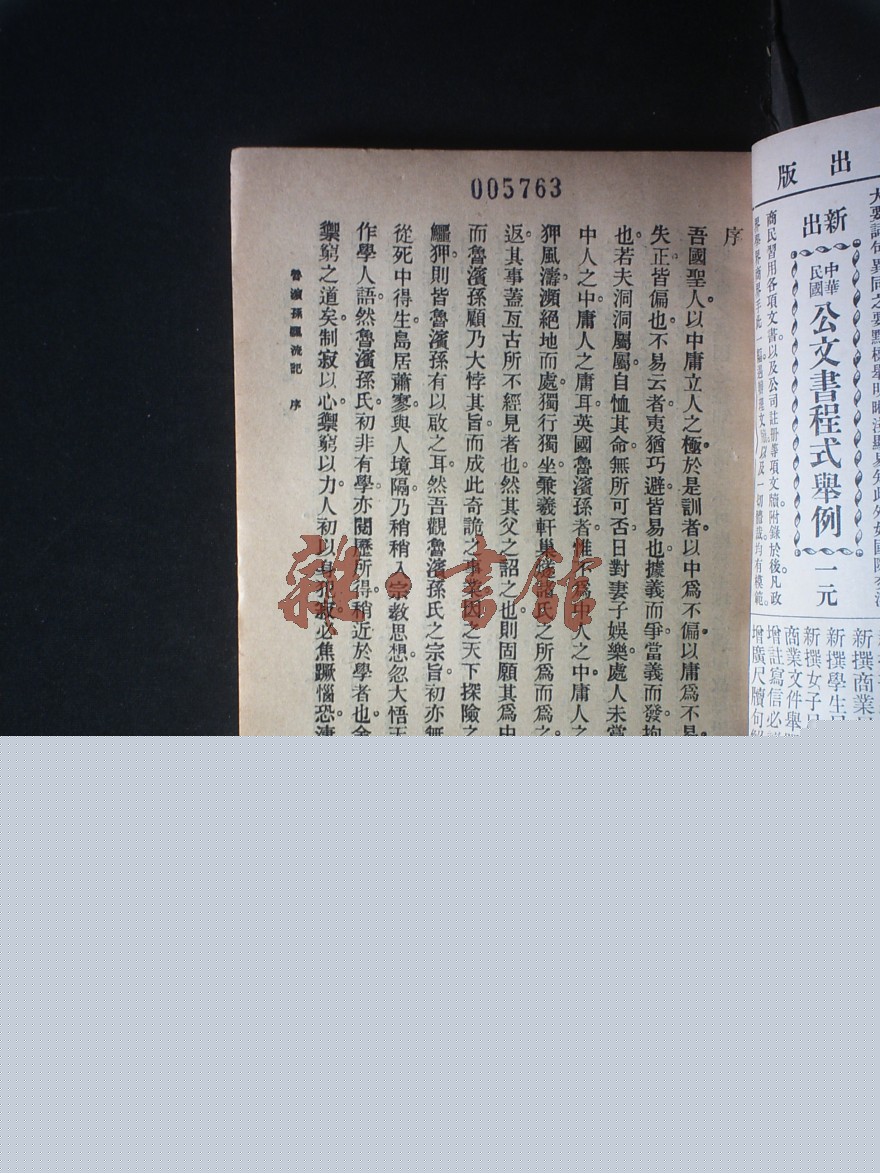 005763
序
吾國聖人以中庸立人之極於是訓者以中爲不偏以庸爲不易
失正皆偏也不易云者夷猶巧避皆易也據義而爭當義而發拘
也若夫洞洞屬屬自恤其命無所可否日對妻子娛樂處人未嘗
中人之中庸人之庸耳英國魯濱孫者惟不爲中人之中庸人之
狎風濤瀕絕地而處獨行獨坐兼羲軒巢諸氏之所爲而爲之
返其事蓋亙古所不經見者也然其父之詔之也則固願其爲中
而魯濱孫顧乃大悖其旨而成此奇詭之事業因之天下探險之
鱷狎則皆魯濱孫有以啟之耳然吾觀魯濱孫氏之宗旨初亦無
從死中得生島居蕭寥與人境隔乃稍稍入宗教思想忽大悟天
作學人語然魯濱孫氏初非有學亦閱歷所得稍近於學者也余
禦窮之道矣制寂以心禦窮以力人初以身犯寂必焦蹶惱恐淒
魯濱孫飄流記 序
雜·書館
出版
新出
中華民國
公文書程式舉例
一元
商民習用各項文書以及公司註册等項文牘附錄於後凡政
新撰商業
新撰學生
新撰女子
商業文件舉
增註寫信必
增廣尺牘句